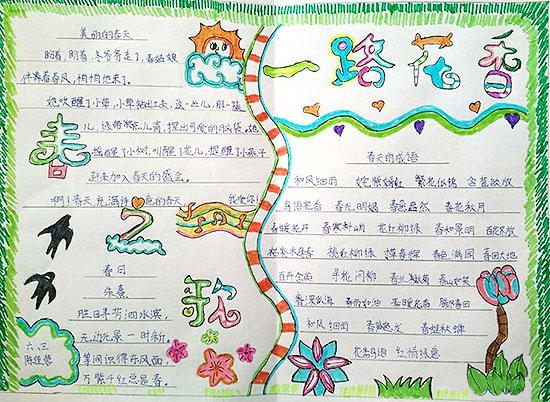 美丽的春天
盼着,盼着,冬爷爷走了,春姑娘
伴着春风,悄悄地来了。
她吹醒了小草,小草钻出来,这一丛儿,那一簇
儿,绿带微儿青,探出可爱的脑袋,她
摇醒了小树,叫醒了花儿,提醒了小燕子
赶来加入春天的盛会。
啊!春天,充满色的春天,我爱你!
春
之
歌
春日
朱熹
胜日寻芳泗水滨,
无边光景一时新,
等闲识得东风面,
万紫千红总是春。
六、三
一路花香
春天的成语
和风细雨 姹紫嫣红 繁花似锦 含苞欲放
鸟语花香 春光明媚 春意盎然 春花秋月
春暖花开 春寒料峭 花红柳绿 春和景明 百花齐放
枯木逢春 桃红柳绿 春色满园 春回大地
百卉含英 寻花问柳 春兰秋菊 春山如笑
春深似海 春雨如油 春暖花香
和风细雨 春蛙秋蝉
花香鸟语 红情绿意